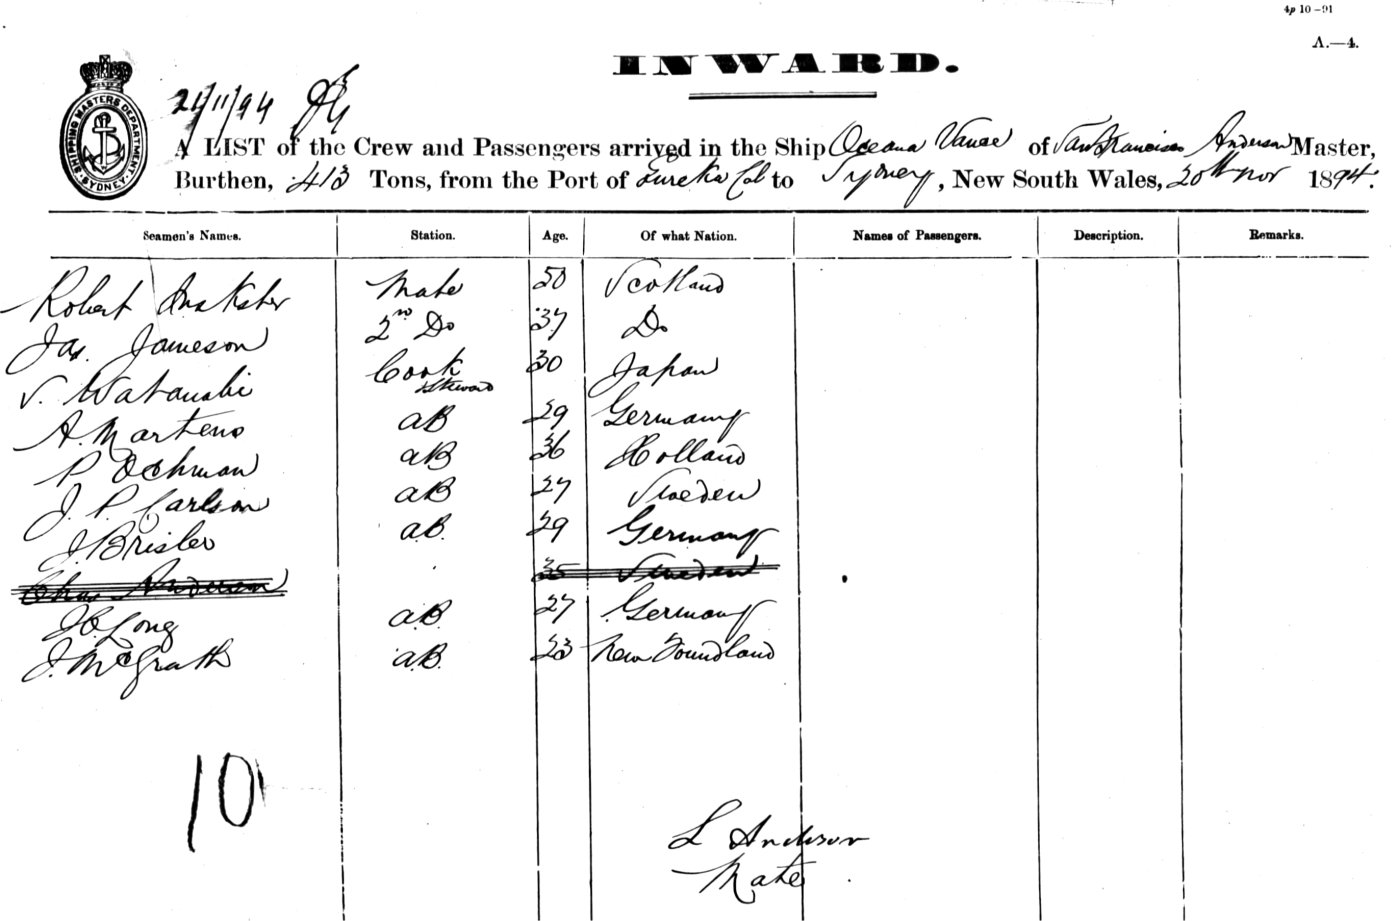 4p 10-91
A.—4.
INWARD.
SHIPPING MASTERS DEPARTMENT. SYDNEY.
21/11/94
A LIST of the Crew and Passengers arrived in the Ship Oceana Vance of San Francisco Anderson Master,
Burthen, 413 Tons, from the Port of Eureka Cal to Sydney, New South Wales, 20th Nov 1894.
Seamen's Names. Station. Age. Of what Nation. Names of Passengers. Description. Remarks.
Robert Inkster Mate 50 Scotland
Jas. Jameson 2nd Do 37 Do
S. Watanabi Cook & Steward 30 Japan
A. Martens AB 29 Germany
P. Ochman AB 36 Holland
J. P. Carlson AB 27 Sweden
J Brisler a.B. 29 Germany
Chas Anderson 35 Sweden
J C Long a.B. 27 Germany
J. McGrath a.B. 23 New Foundland
10
L Anderson
Mate